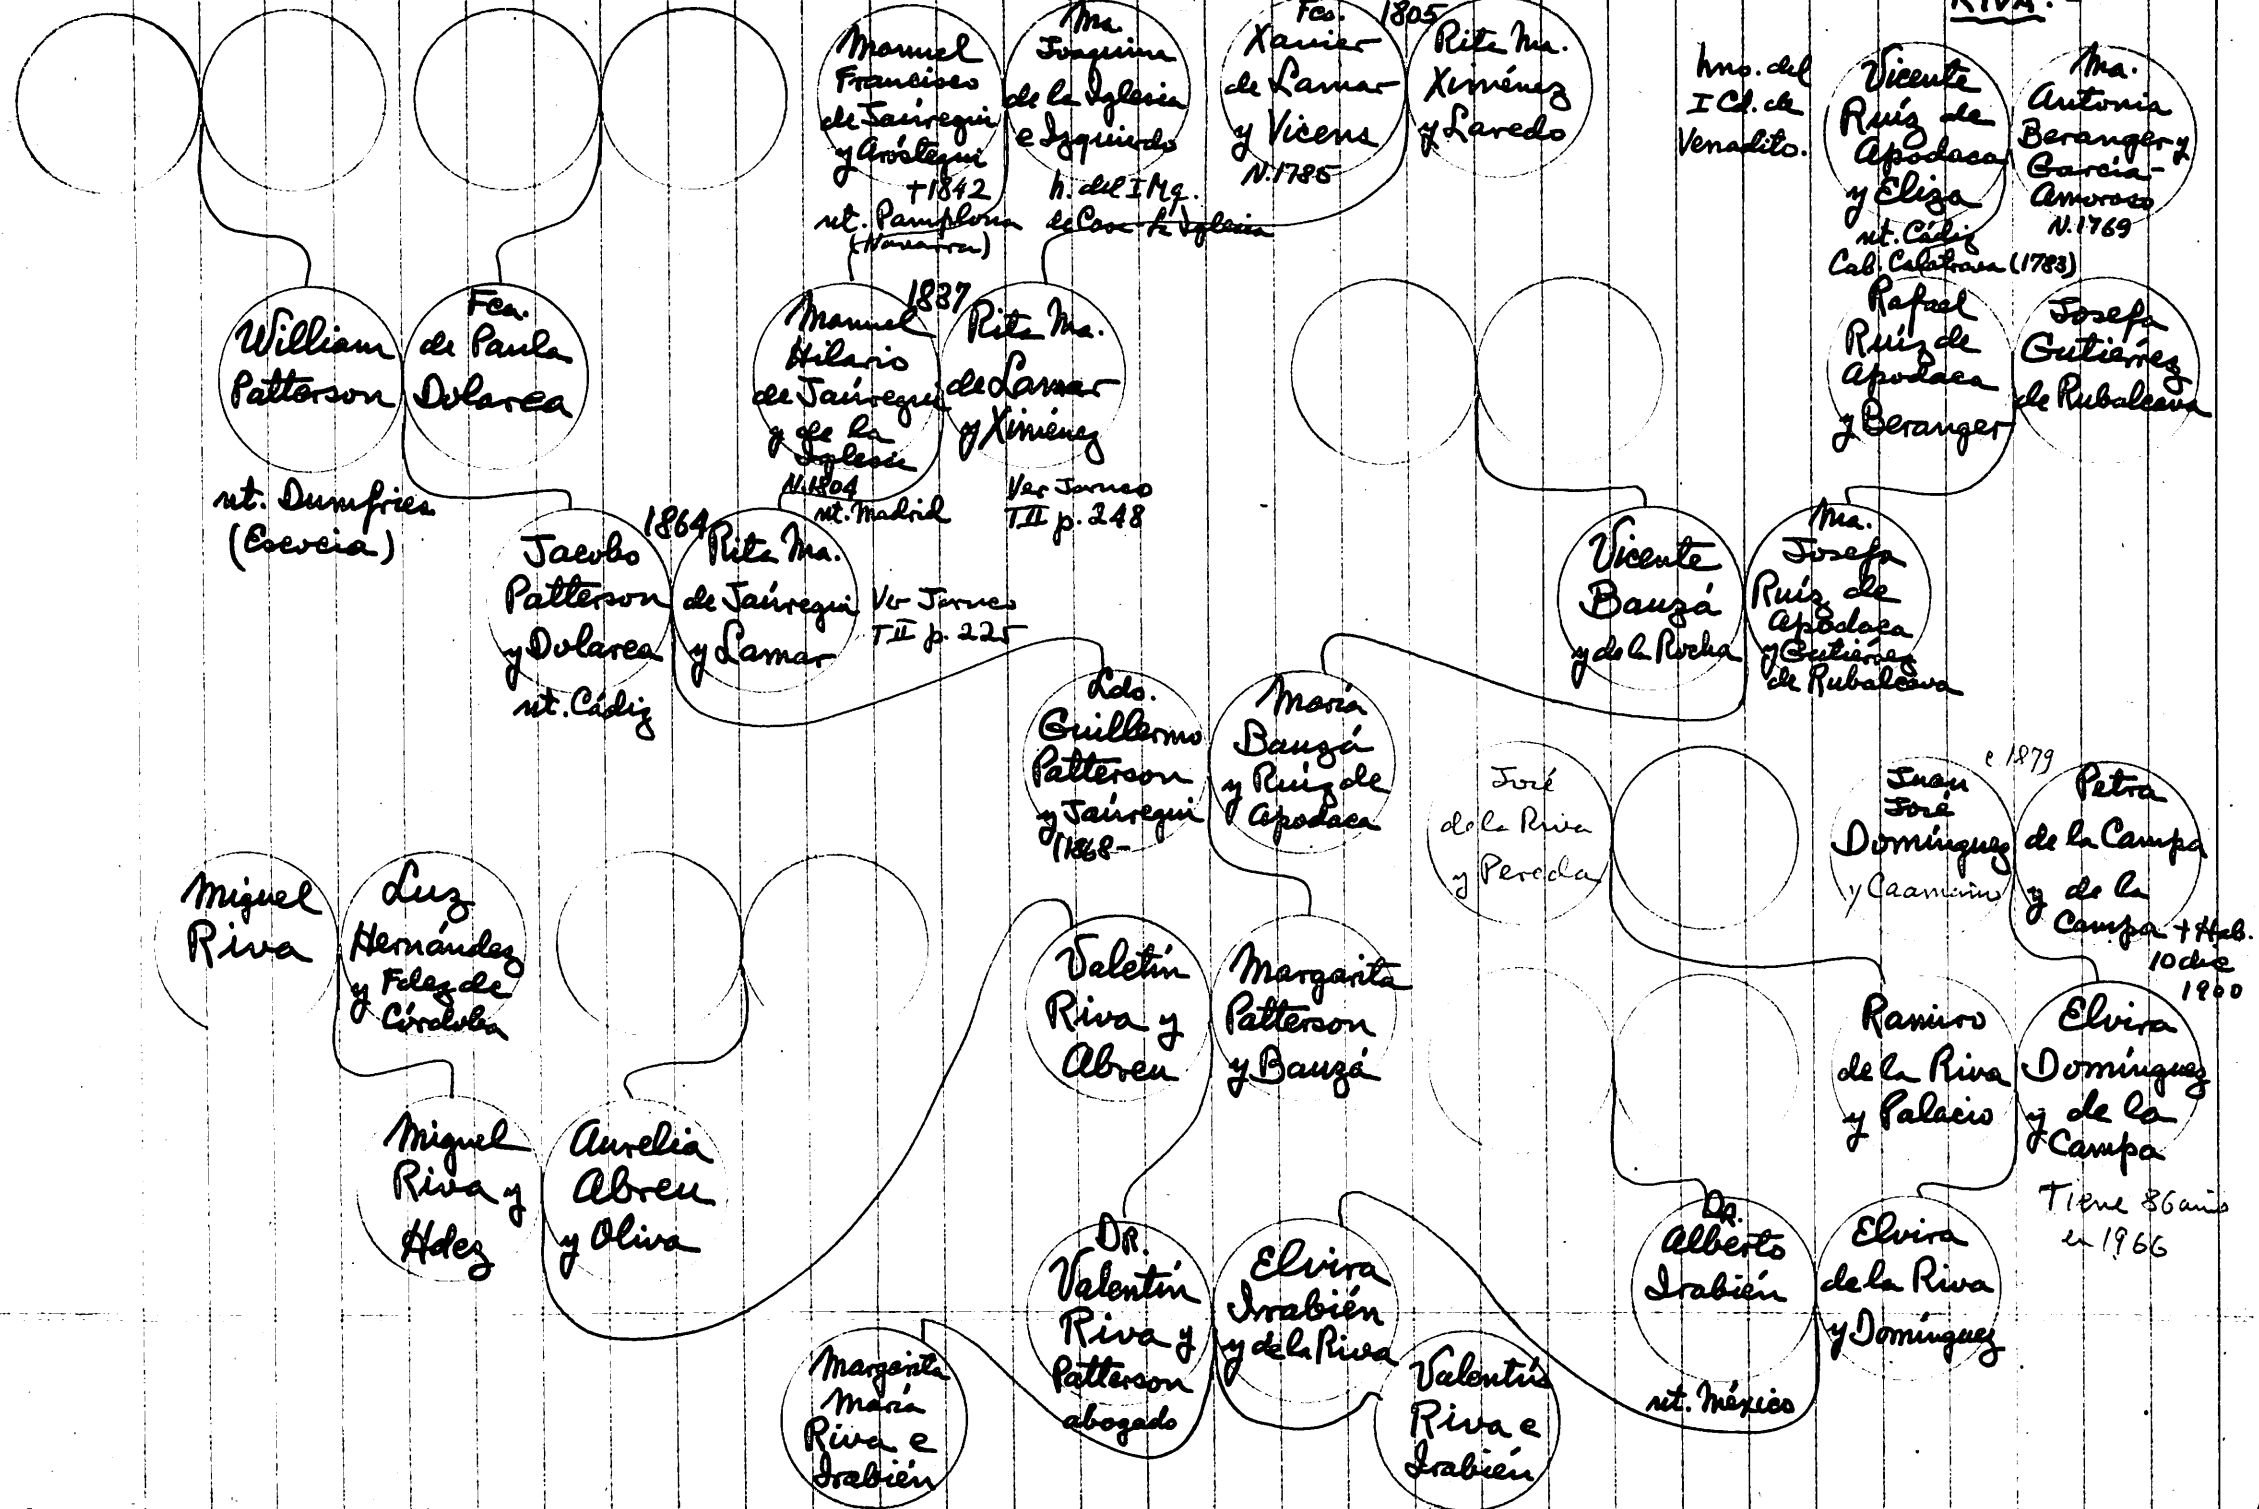 RIVA.-
Manuel
Francisco
de Jaúregui
y Aróstegui
+1842
nt. Pamplona
(Navarra)
Ma.
Joaquina
de la Iglesia
e Izquierdo
h. del I Mq.
de Casa-la Iglesia
Fco.
Xavier
de Lamar
y Vicens
N.1785
1805
Rita Ma.
Ximénez
y Laredo
hno. del
I Cd. de
Venadito.
Vicente
Ruíz de
Apodaca
y Eliza
nt. Cádiz
Cab. Calatrava (1783)
Ma.
Antonia
Beranger y
García-
Amoroso
N.1769
William
Patterson
nt. Dumfries
(Escocia)
Fca.
de Paula
Dolarea
Manuel
Hilario
de Jaúregui
y de la
Iglesia
N.1804
nt. Madrid
1837
Rita Ma.
de Lamar
y Ximénez
Ver Jaruco
TII p. 248
Rafael
Ruíz de
Apodaca
y Beranger
Josefa
Gutiérrez
de Rubalcava
Jacobo
Patterson
y Dolarea
nt. Cádiz
1864
Rita Ma.
de Jaúregui
y Lamar
Ver Jaruco
TII p. 225
Vicente
Bauzá
y de la Rocha
Ma.
Josefa
Ruíz de
Apodaca
y Gutiérrez
de Rubalcava
Ldo.
Guillermo
Patterson
y Jaúregui
(1868-
María
Bauzá
y Ruíz de
Apodaca
José
de la Riva
y Pereda
Juan
José
Domínguez
y Caamaño
c 1879
Petra
de la Campa
y de la
Campa + Hab.
10 dic
1900
Miguel
Riva
Luz
Hernández
y Fdez de
Córdoba
Valetín
Riva y
Abreu
Margarita
Patterson
y Bauzá
Ramiro
de la Riva
y Palacio
Elvira
Domínguez
y de la
Campa
Tiene 86 años
en 1966
Miguel
Riva y
Hdez
Aurelia
Abreu
y Oliva
DR.
Valentín
Riva y
Patterson
abogado
Elvira
Irabién
y de la Riva
DR.
Alberto
Irabién
nt. México
Elvira
de la Riva
y Domínguez
Margarita
María
Riva e
Irabién
Valentín
Riva e
Irabién